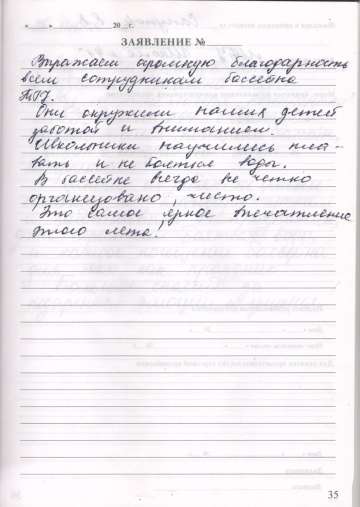 « » 20 г.
ЗАЯВЛЕНИЕ №
Выражаем огромную благодарность
всем сотрудникам бассейна
Они окружили наших детей
заботой и вниманием.
Школьники научились пла-
вать и не боятся воды.
В бассейне всегда все четко
организовано, чисто.
Это самое яркое впечатление
этого лета!
35